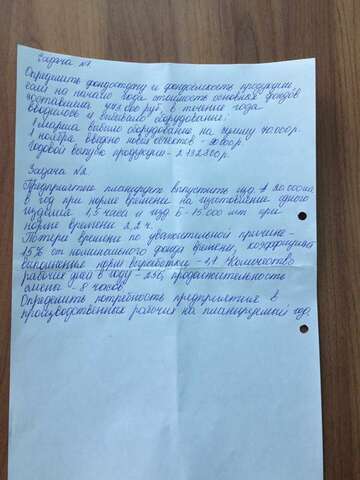 Задача №1
Определить фондоотдачу и фондоемкость продукции,
если на начало года стоимость основных фондов
составляла 448000 руб, в течение года
вводилось и выбывало оборудование:
1 марта выбыло оборудование на сумму 40000р.
1 ноября введено новых объектов - 80000р.
Годовой выпуск продукции -
Задача №2
Предприятие планирует выпустить изд. А 20 000 шт
в год при норме времени на изготовление одного
изделия 1,5 часа и изд Б - 15 000 шт при
норме времени 2,2 ч.
Потери времени по уважительной причине -
15% от номинального фонда времени, коэффициент
выполнения норм выработки - 1,1 Количество
рабочих дней в году - 256, продолжительность
смены - 8 часов
Определить потребность предприятия в
производственных рабочих на планируемый год.